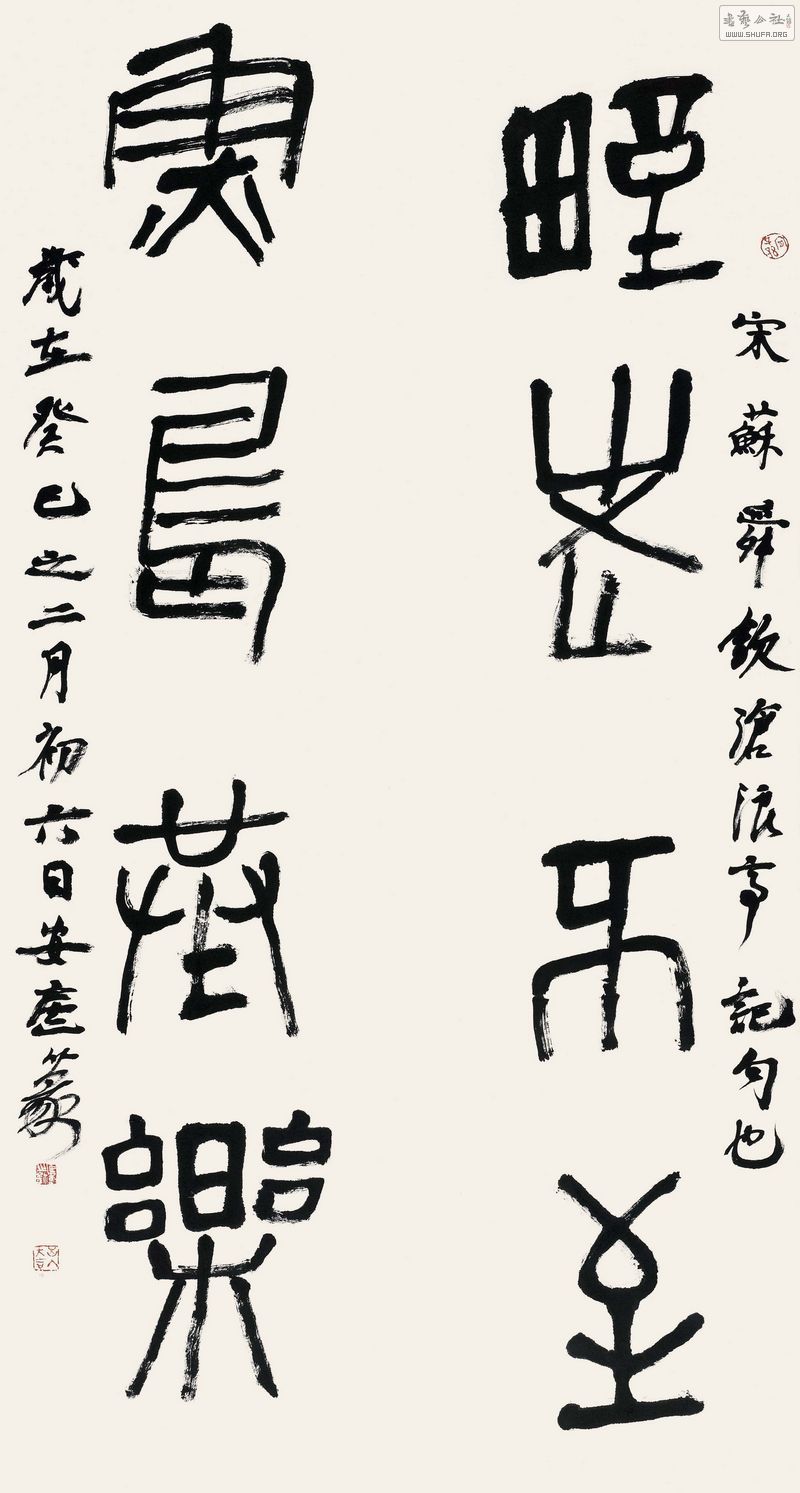 宋蘇舜欽滄浪亭記句也
野老不至
魚鳥共樂
歲在癸巳之二月初六日安篆
書藝公社
WWW.SHUFA.ORG